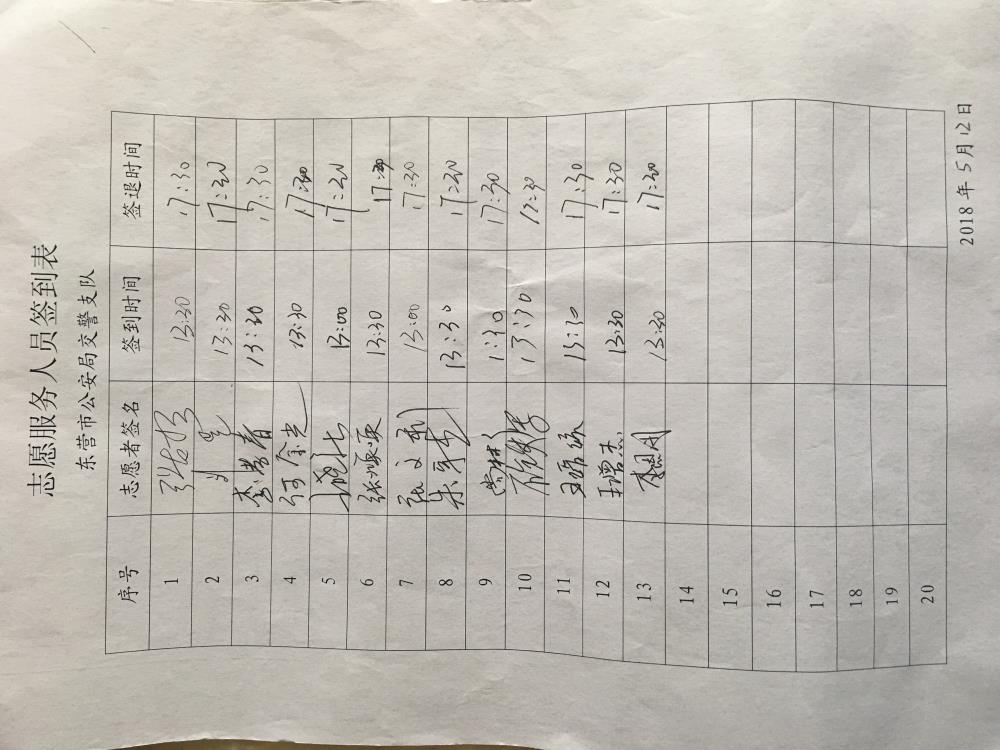 志愿服务人员签到表
东营市公安局交警支队
序号 志愿者签名 签到时间 签退时间
1 13:30 17:30
2 13:30 17:30
3 李常春 13:30 17:30
4 何金光 13:30 17:30
5 13:00 17:30
6 张顺 13:30 17:30
7 张文 13:00 17:30
8 朱 13:30 17:30
9 1:30 17:30
10 13:30 17:30
11 王 13:30 17:30
12 王曾杰 13:30 17:30
13 李 13:30 17:30
14
15
16
17
18
19
20
2018年5月12日